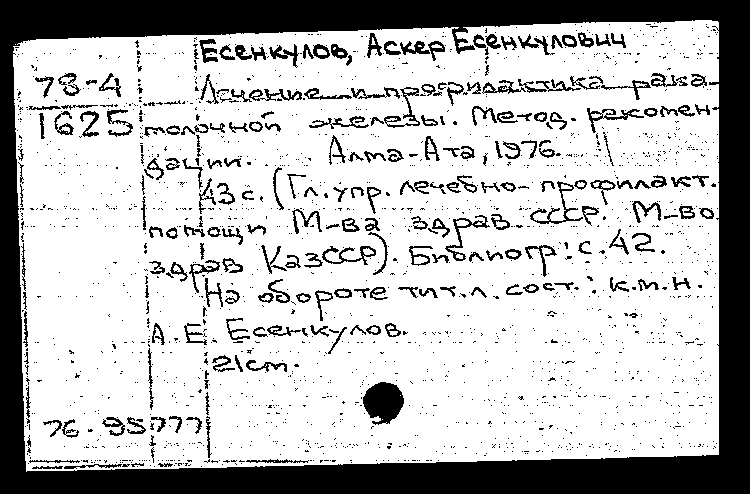 Есенкулов, Аскер Есенкулович
78-4
Лечение и профилактика рака
1625
молочной железы. Метод. рекомен-
дации. Алма-Ата, 1976.
43 с. (Гл. упр. лечебно-профилакт.
помощи М-ва здрав. СССР. М-во
здрав КазССР). Библиогр: с. 42.
На обороте тит. л. сост.: к.м.н.
А. Е. Есенкулов.
21cm.
76-95777